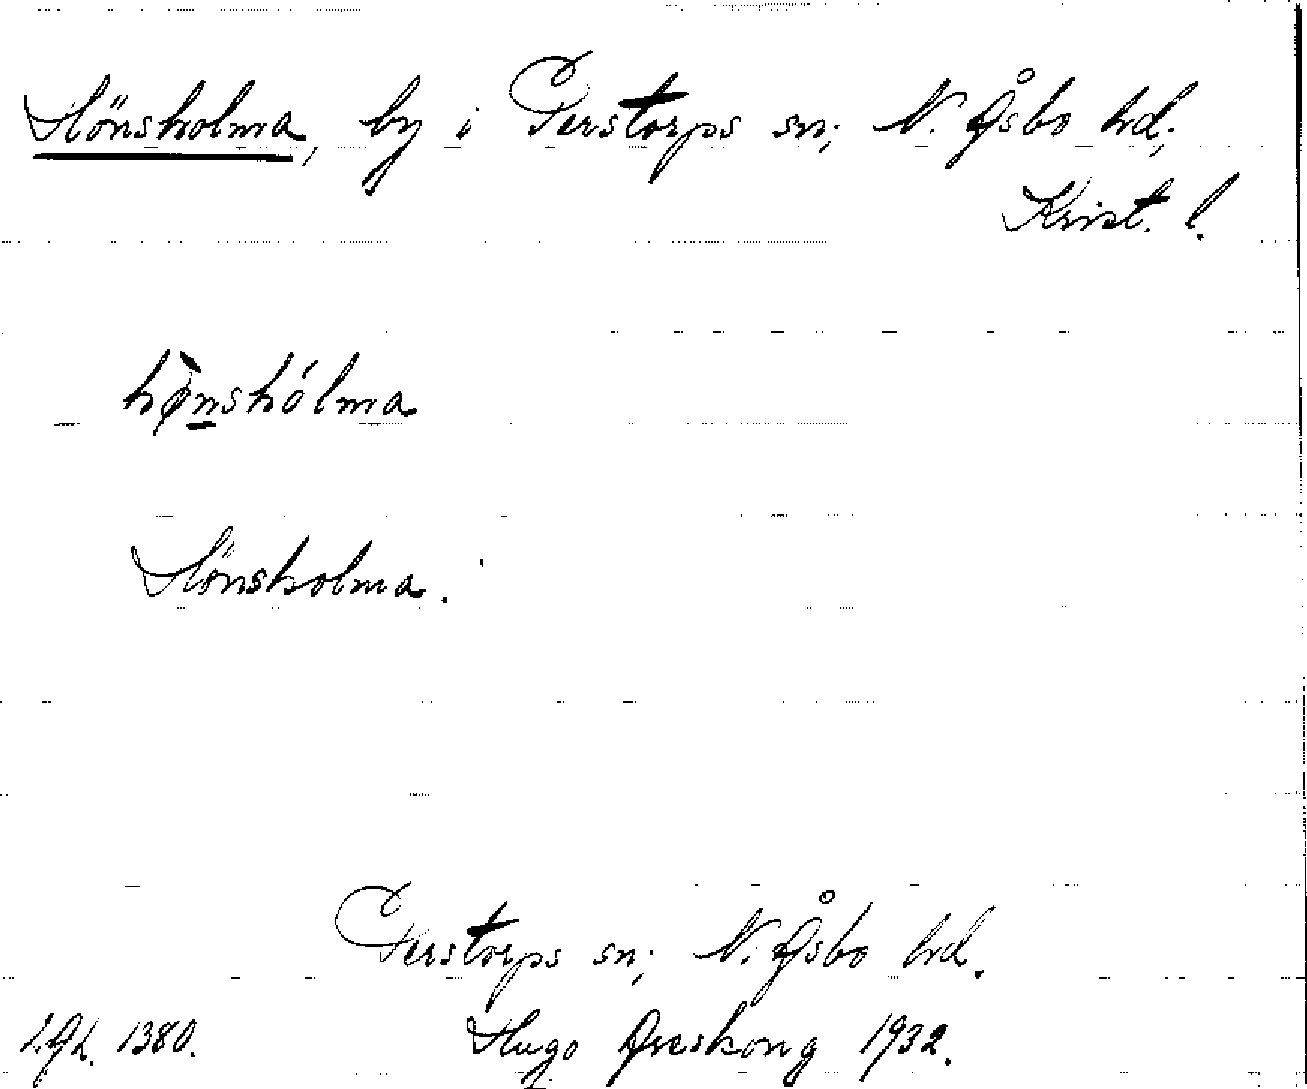 Hönsholma, by i Perstorps sn; N. Åsbo hd;
Krist. l.
hø̀nshólma
Hönsholma.
Perstorps sn; N. Åsbo hd.
1380. Hugo Areskoug 1932.